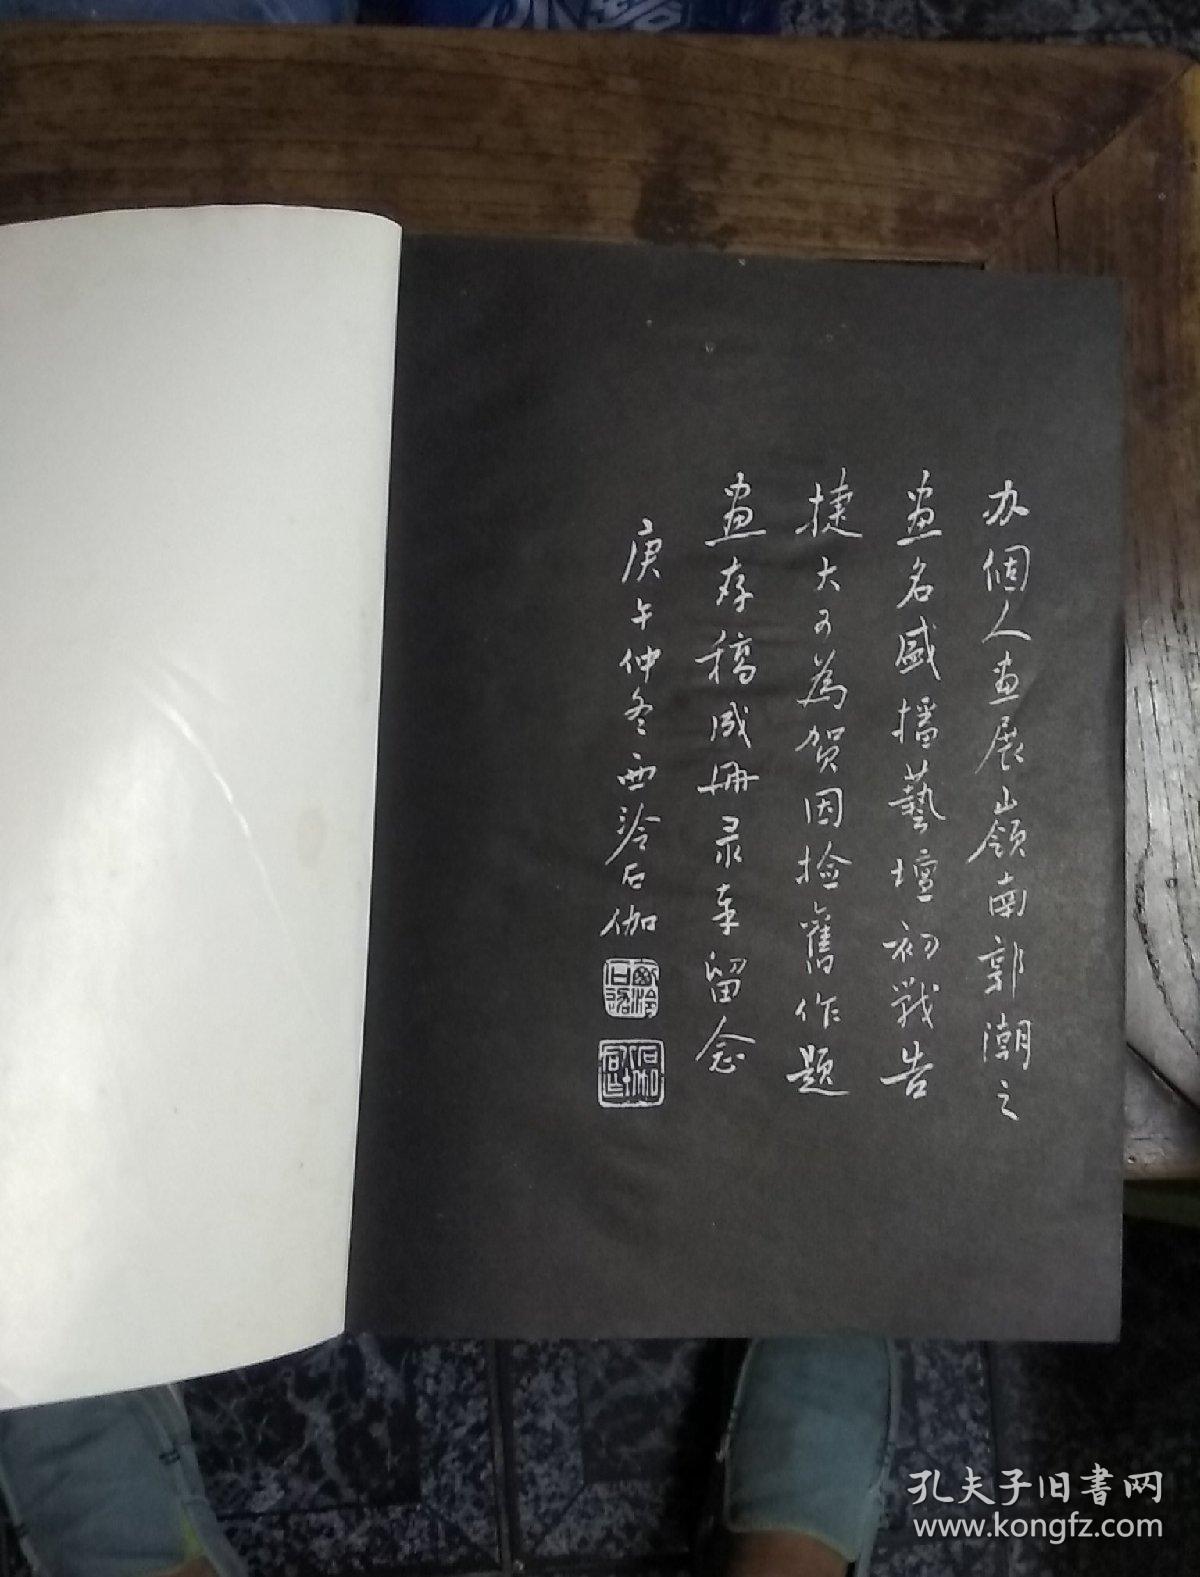 办個人画展嶺南郭潮之
画名盛播藝壇初戰告
捷大可為贺因捡舊作題
画存稿成册录奉留念
庚午仲冬西泠石伽
孔夫子旧书网
www.kongfz.com